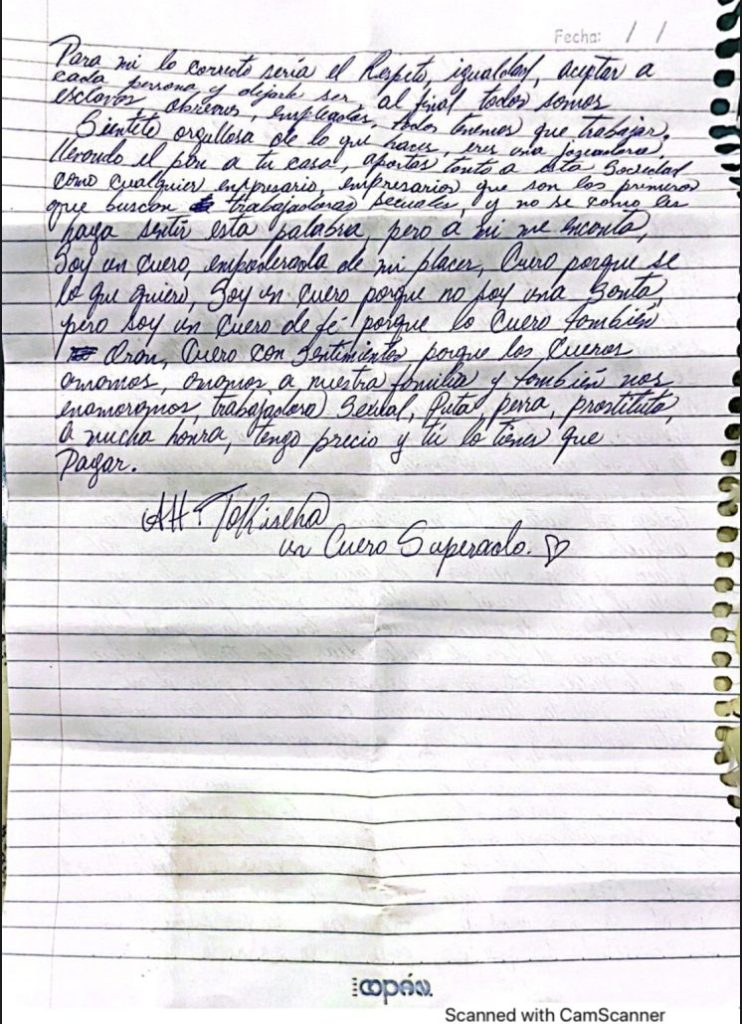 Fecha: / /
Para mi lo correcto sería el Respeto, igualdad, aceptar a
cada persona y dejarle ser, al final todos somos
esclavos, obreros, empleadas, todos tenemos que trabajar.
Sientete orgullosa de lo que haces, eres una
llevando el pan a tu casa, aportas tanto a esta Sociedad
como cualquier empresario, empresarios que son los primeros
que buscan trabajadoras sexuales, y no se como les
haga sentir esta palabra, pero a mi me encanta,
Soy un cuero, empoderada de mi placer, Cuero porque se
lo que quiero, Soy un cuero porque no soy una Santa,
pero soy un cuero de fé porque lo Cuero también
Oran, Cuero con Sentimientos porque los Cueros
amamos, amamos a nuestra familia y también nos
enamoramos, trabajadora Sexual, Puta, perra, prostituta,
a mucha honra, tengo precio y tú lo tienes que
Pagar.
un Cuero Superado. ♡
copán
Scanned with CamScanner